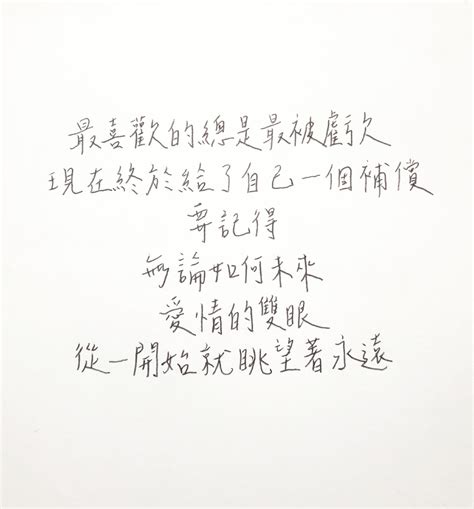 最喜歡的總是最被虧欠
現在終於給了自己一個補償
要記得
無論如何未來
愛情的雙眼
從一開始就眺望著永遠